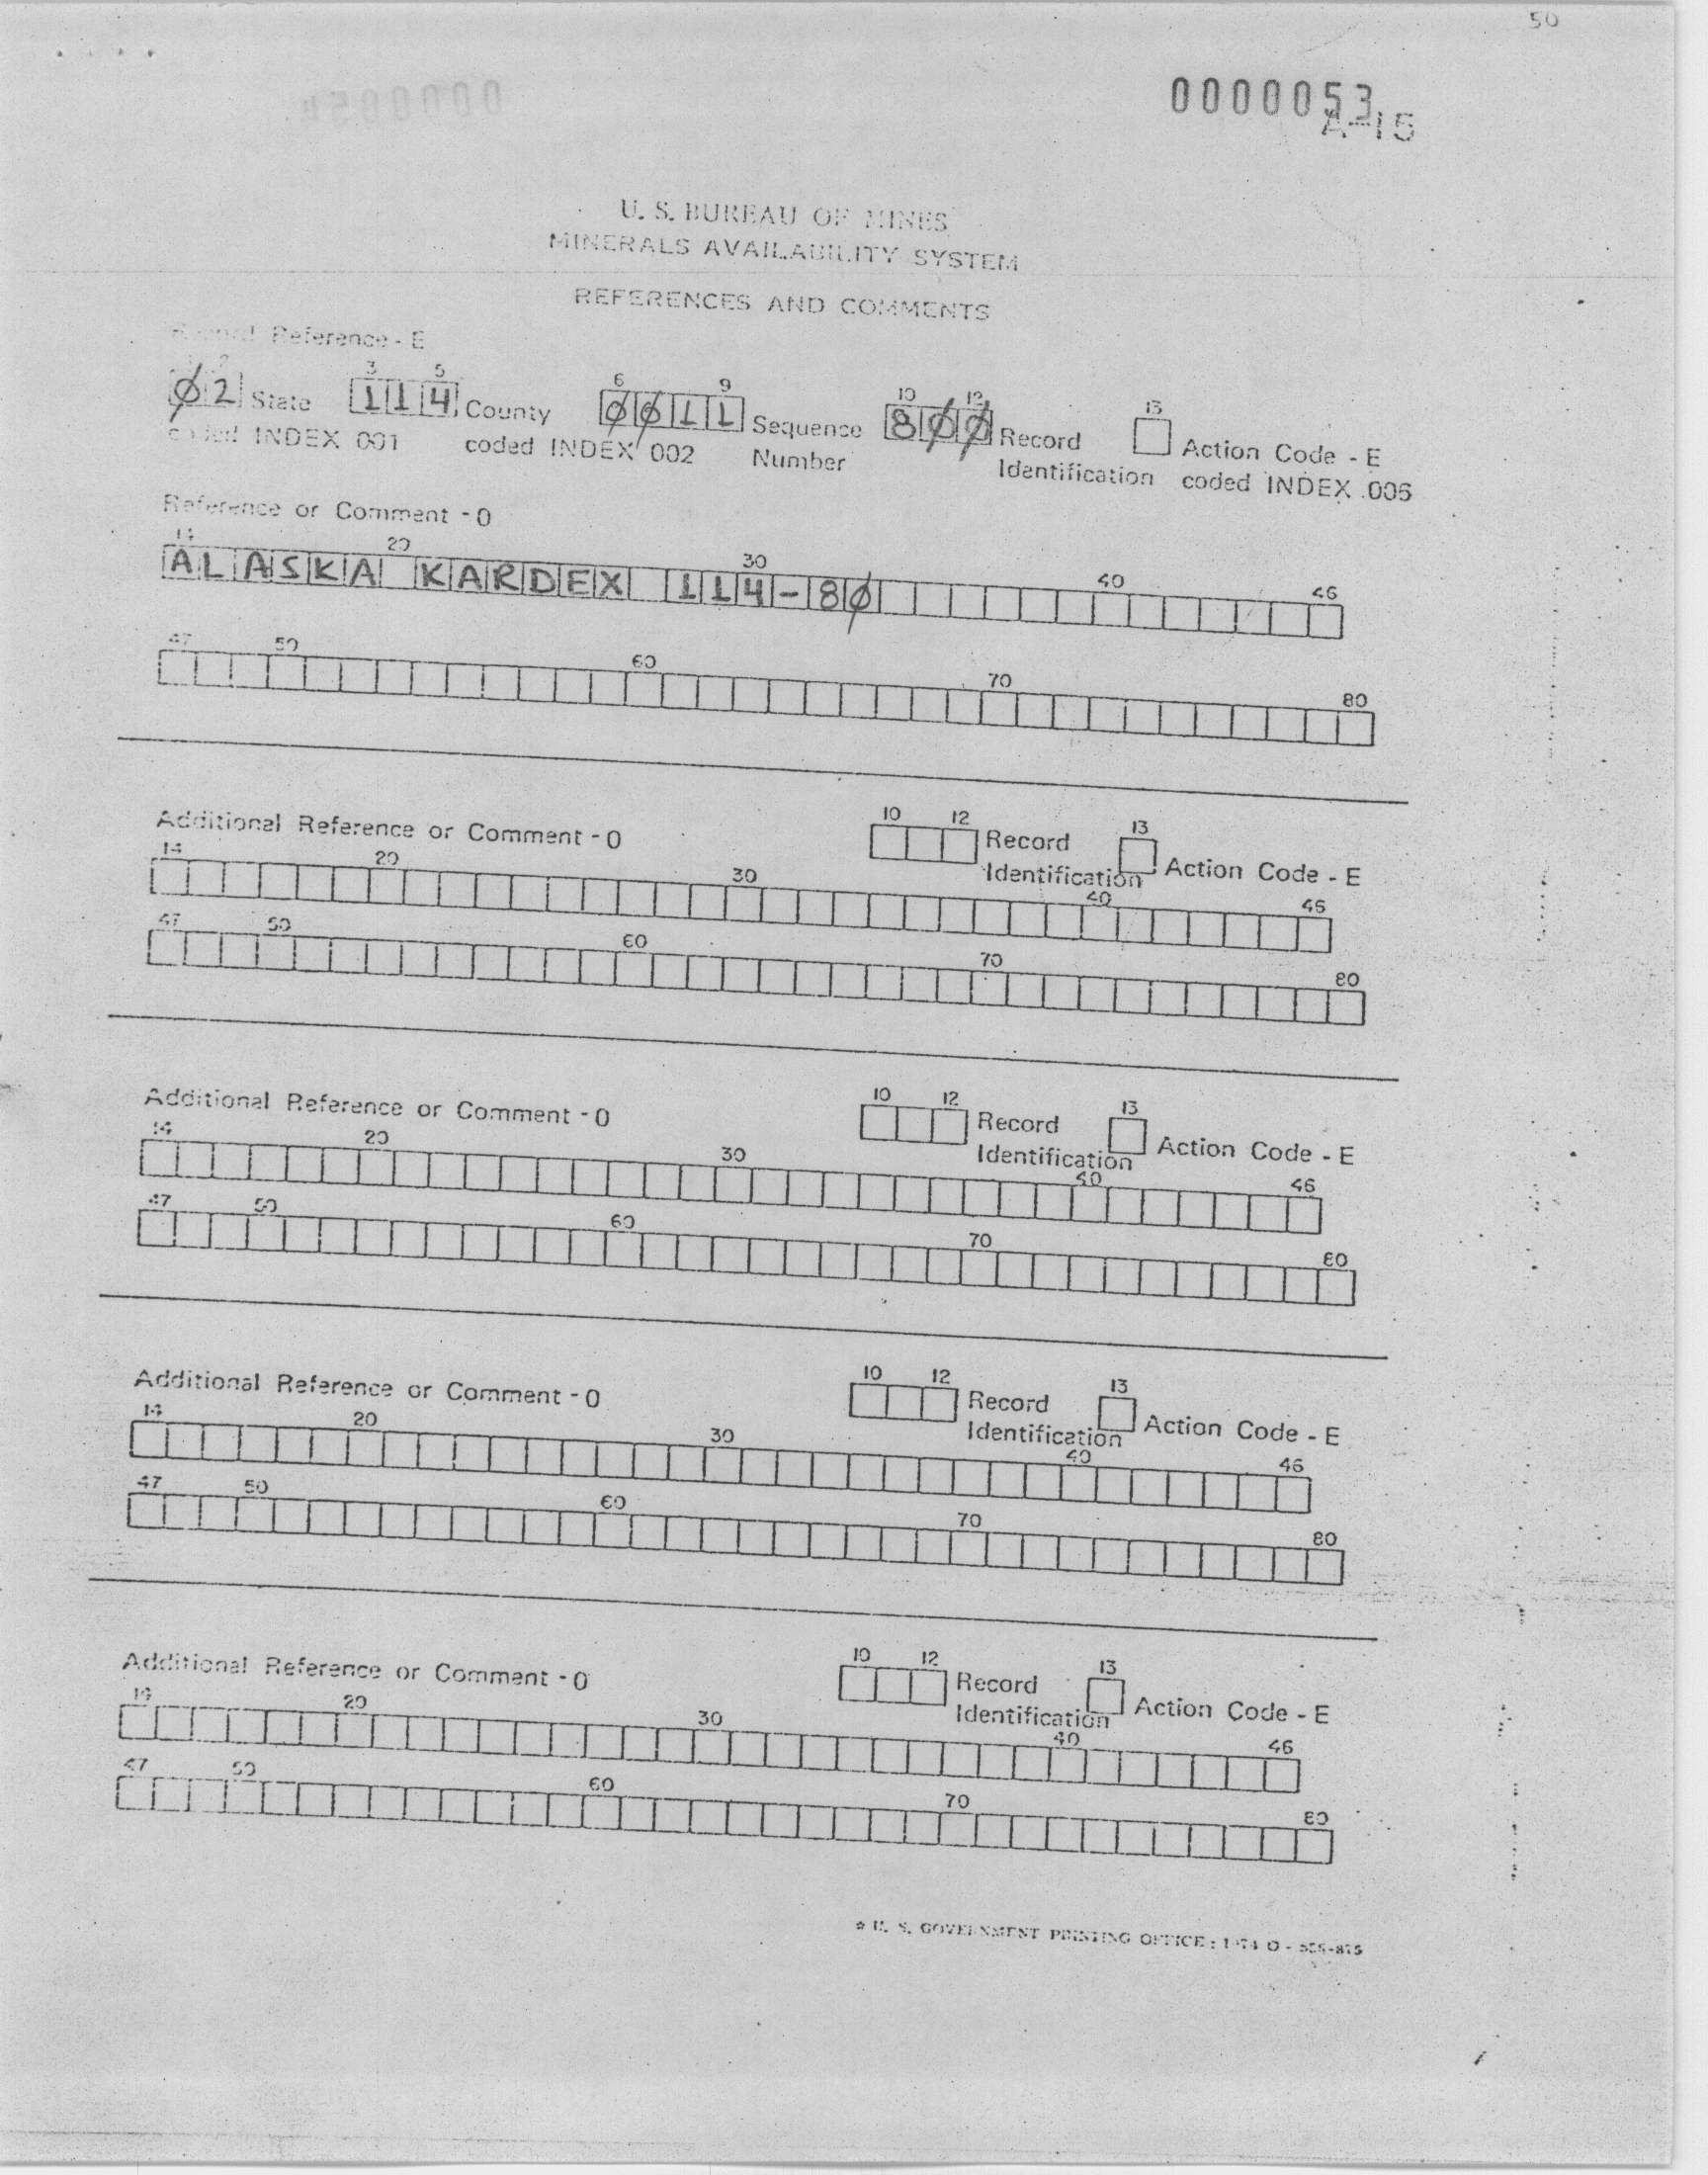 50
0000053
A-15
U. S. BUREAU OF MINES
MINERALS AVAILABILITY SYSTEM
REFERENCES AND COMMENTS
Reference - E
2 3 5 6 9 10 12 13
02 State 114 County 0011 Sequence 800 Record Action Code - E
coded INDEX 001 coded INDEX 002 Number Identification coded INDEX 006
Reference or Comment - O
14 20 30 40 46
ALASKA KARDEX 114-80
47 50 60 70 80
Additional Reference or Comment - O 10 12 Record 13 Action Code - E
Identification
14 20 30 40 46
47 50 60 70 80
Additional Reference or Comment - O 10 12 Record 13 Action Code - E
Identification
14 20 30 40 46
47 50 60 70 80
Additional Reference or Comment - O 10 12 Record 13 Action Code - E
Identification
14 20 30 40 46
47 50 60 70 80
Additional Reference or Comment - O 10 12 Record 13 Action Code - E
Identification
14 20 30 40 46
47 50 60 70 80
☆ U. S. GOVERNMENT PRINTING OFFICE : 1974 O -